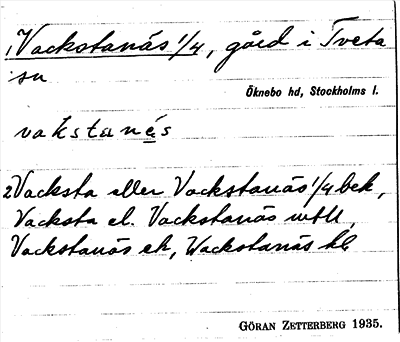 1, Vackstanäs 1/4, gård i Tveta
sn
Öknebo hd, Stockholms l.
vakstanés
2 Vacksta eller Vackstanäs 1/4 bek,
Vacksta el. Vackstanäs mtll,
Vackstanäs ek, Wackstanäs kl
GÖRAN ZETTERBERG 1935.